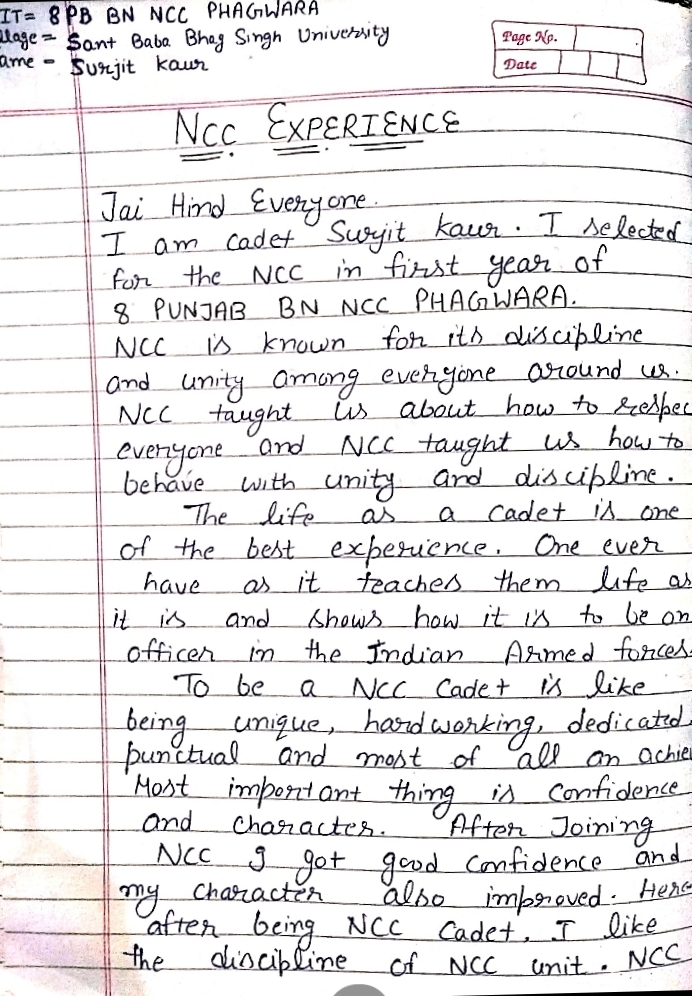 IT= 8 PB BN NCC PHAGWARA
llage = Sant Baba Bhag Singh University
ame - Surjit kaur
Page No.
Date
NCC EXPERIENCE
Jai Hind Everyone.
I am cadet Surjit kaur. I selected
for the NCC in first year of
8 PUNJAB BN NCC PHAGWARA.
NCC is known for its discipline
and unity among everyone around us.
NCC taught us about how to respec
everyone and NCC taught us how to
behave with unity and discipline.
The life as a cadet is one
of the best experience. One ever
have as it teaches them life as
it is and shows how it is to be an
officer in the Indian Armed forces.
To be a NCC Cadet is like
being unique, hardworking, dedicated,
punctual and most of all an achie
Most important thing is Confidence
and character. After Joining
NCC I got good confidence and
my character also improved. Here
after being NCC Cadet, I like
the discipline of NCC unit. NCC